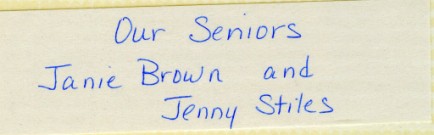 Our Seniors
Janie Brown and
Jenny Stiles